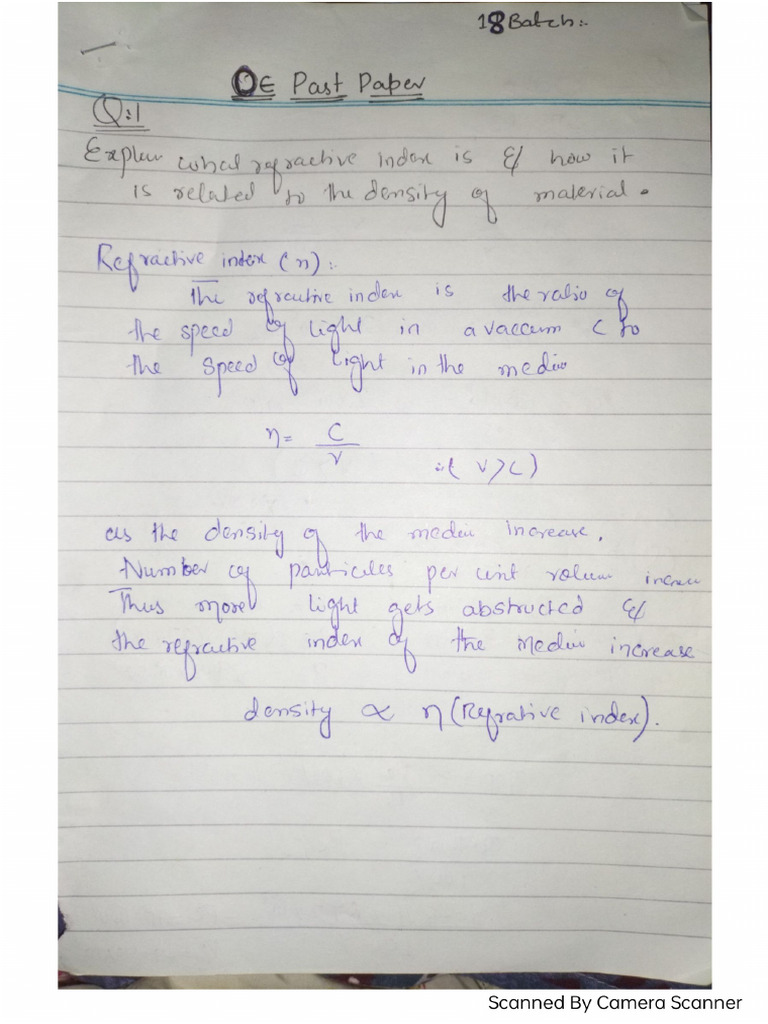 18 Batch:-
OE Past Paper
Q:1
Explain what refractive index is & how it
is related to the density of material.
Refractive index (n):
The refractive index is the ratio of
the speed of light in a vaccum C to
the speed of light in the
n = C
v
:( v > C )
as the density of the increase.
Number of particules per unit
Thus more light gets abstructed &
the refractive index of the increase
density ∝ η (Refrative index).
Scanned By Camera Scanner